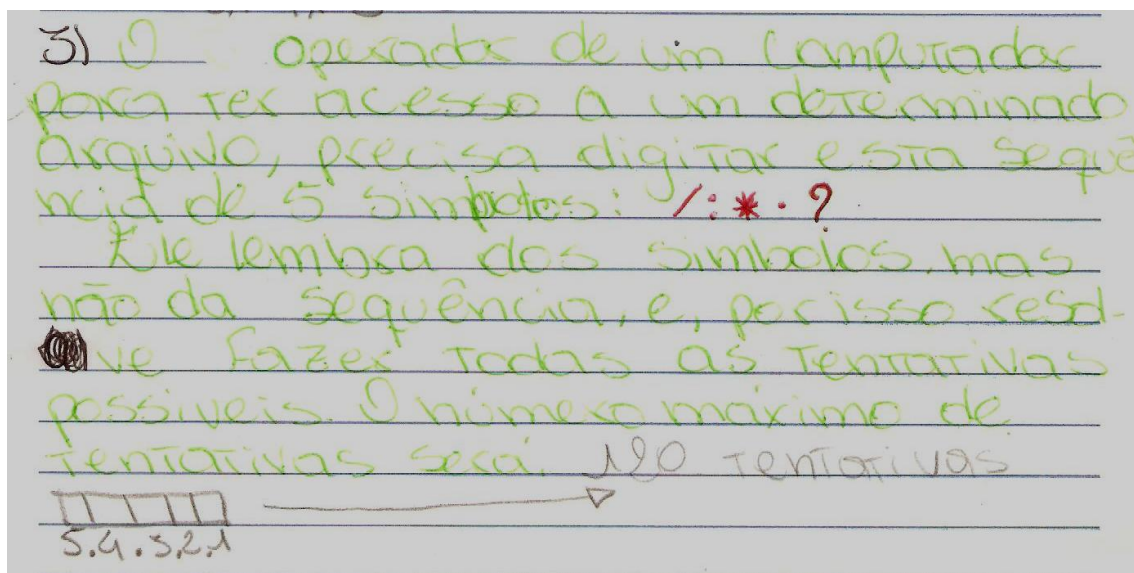 3) O operador de um computador
para ter acesso a um determinado
arquivo, precisa digitar esta sequê
ncia de 5 simbolos: / : * . ?
Ele lembra dos simbolos, mas
não da sequência, e, por isso resol-
ve fazer todas as tentativas
possiveis. O número máximo de
tentativas será. 120 tentativas
5.4.3.2.1